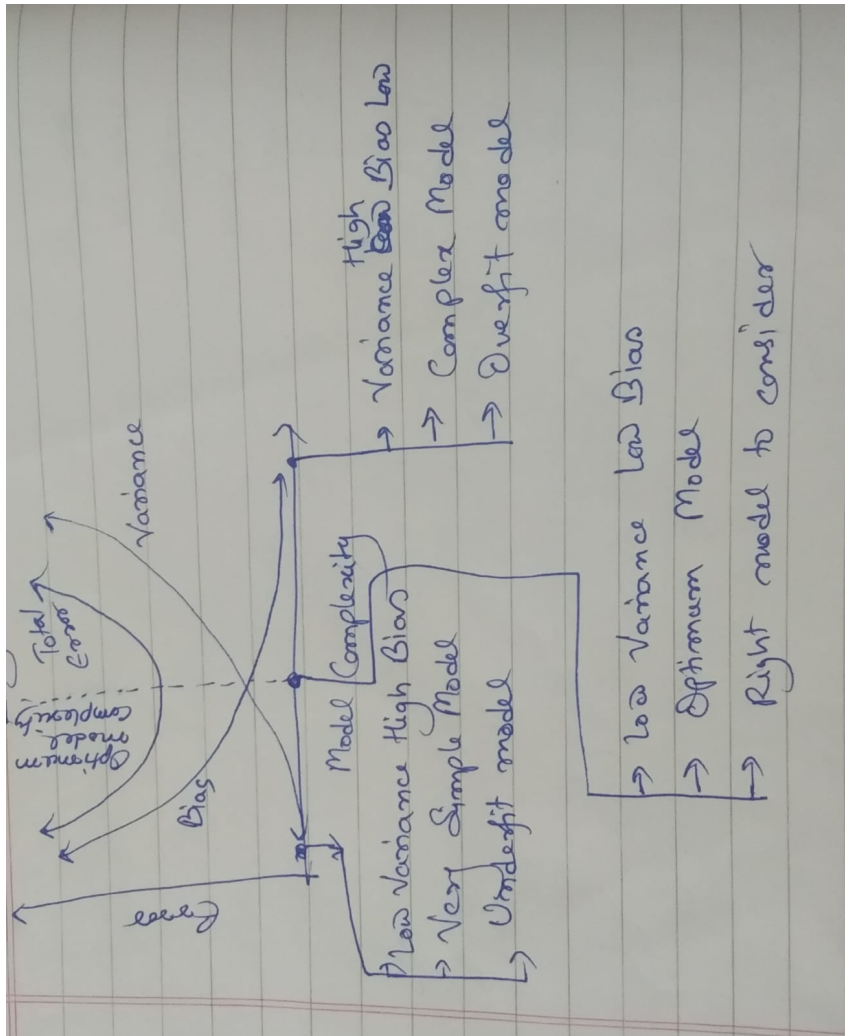 Error
Bias
Optimum
model
complexity
Total
Error
Variance
Model Complexity
→ Low Variance High Bias
→ Very Simple Model
→ Underfit model
High
→ Variance Bias Low
→ Complex Model
→ Overfit model
→ Low Variance Low Bias
→ Optimum Model
→ Right model to consider